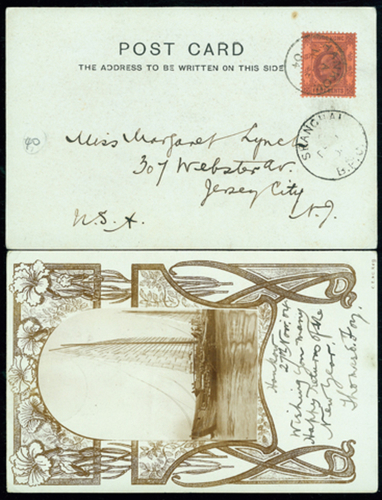 POST CARD
THE ADDRESS TO BE WRITTEN ON THIS SIDE
04
SHANGHAI
B.P.O.
40
Miss Margaret Lynch
307 Webster Av.
Jersey City
N.J.
U.S.A.
27th Nov. 04
Wishing you many
Happy returns of the
New Year.
Thomas Foy